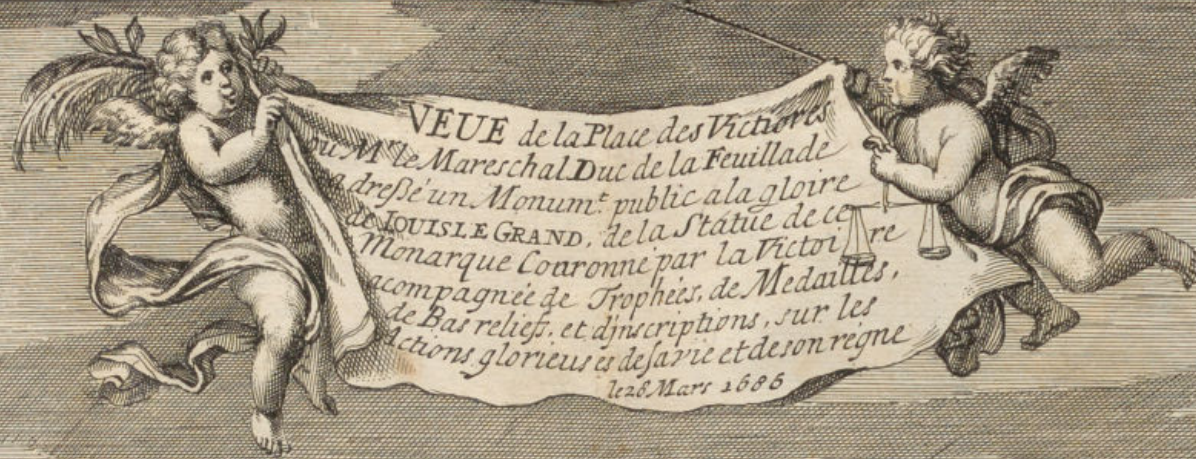 VEUE de la Place des Victiores
ou Mr. le Mareschal Duc de la Feuillade
a dreßé un Monumt. public a la gloire
de LOUIS LE GRAND, de la Statüe de ce
Monarque Couronné par la Victoire
acompagnée de Trophées, de Medailles,
de Bas reliefs, et d'inscriptions, sur les
Actions glorieuses de sa vie et de son régne
le 28 Mars 1686